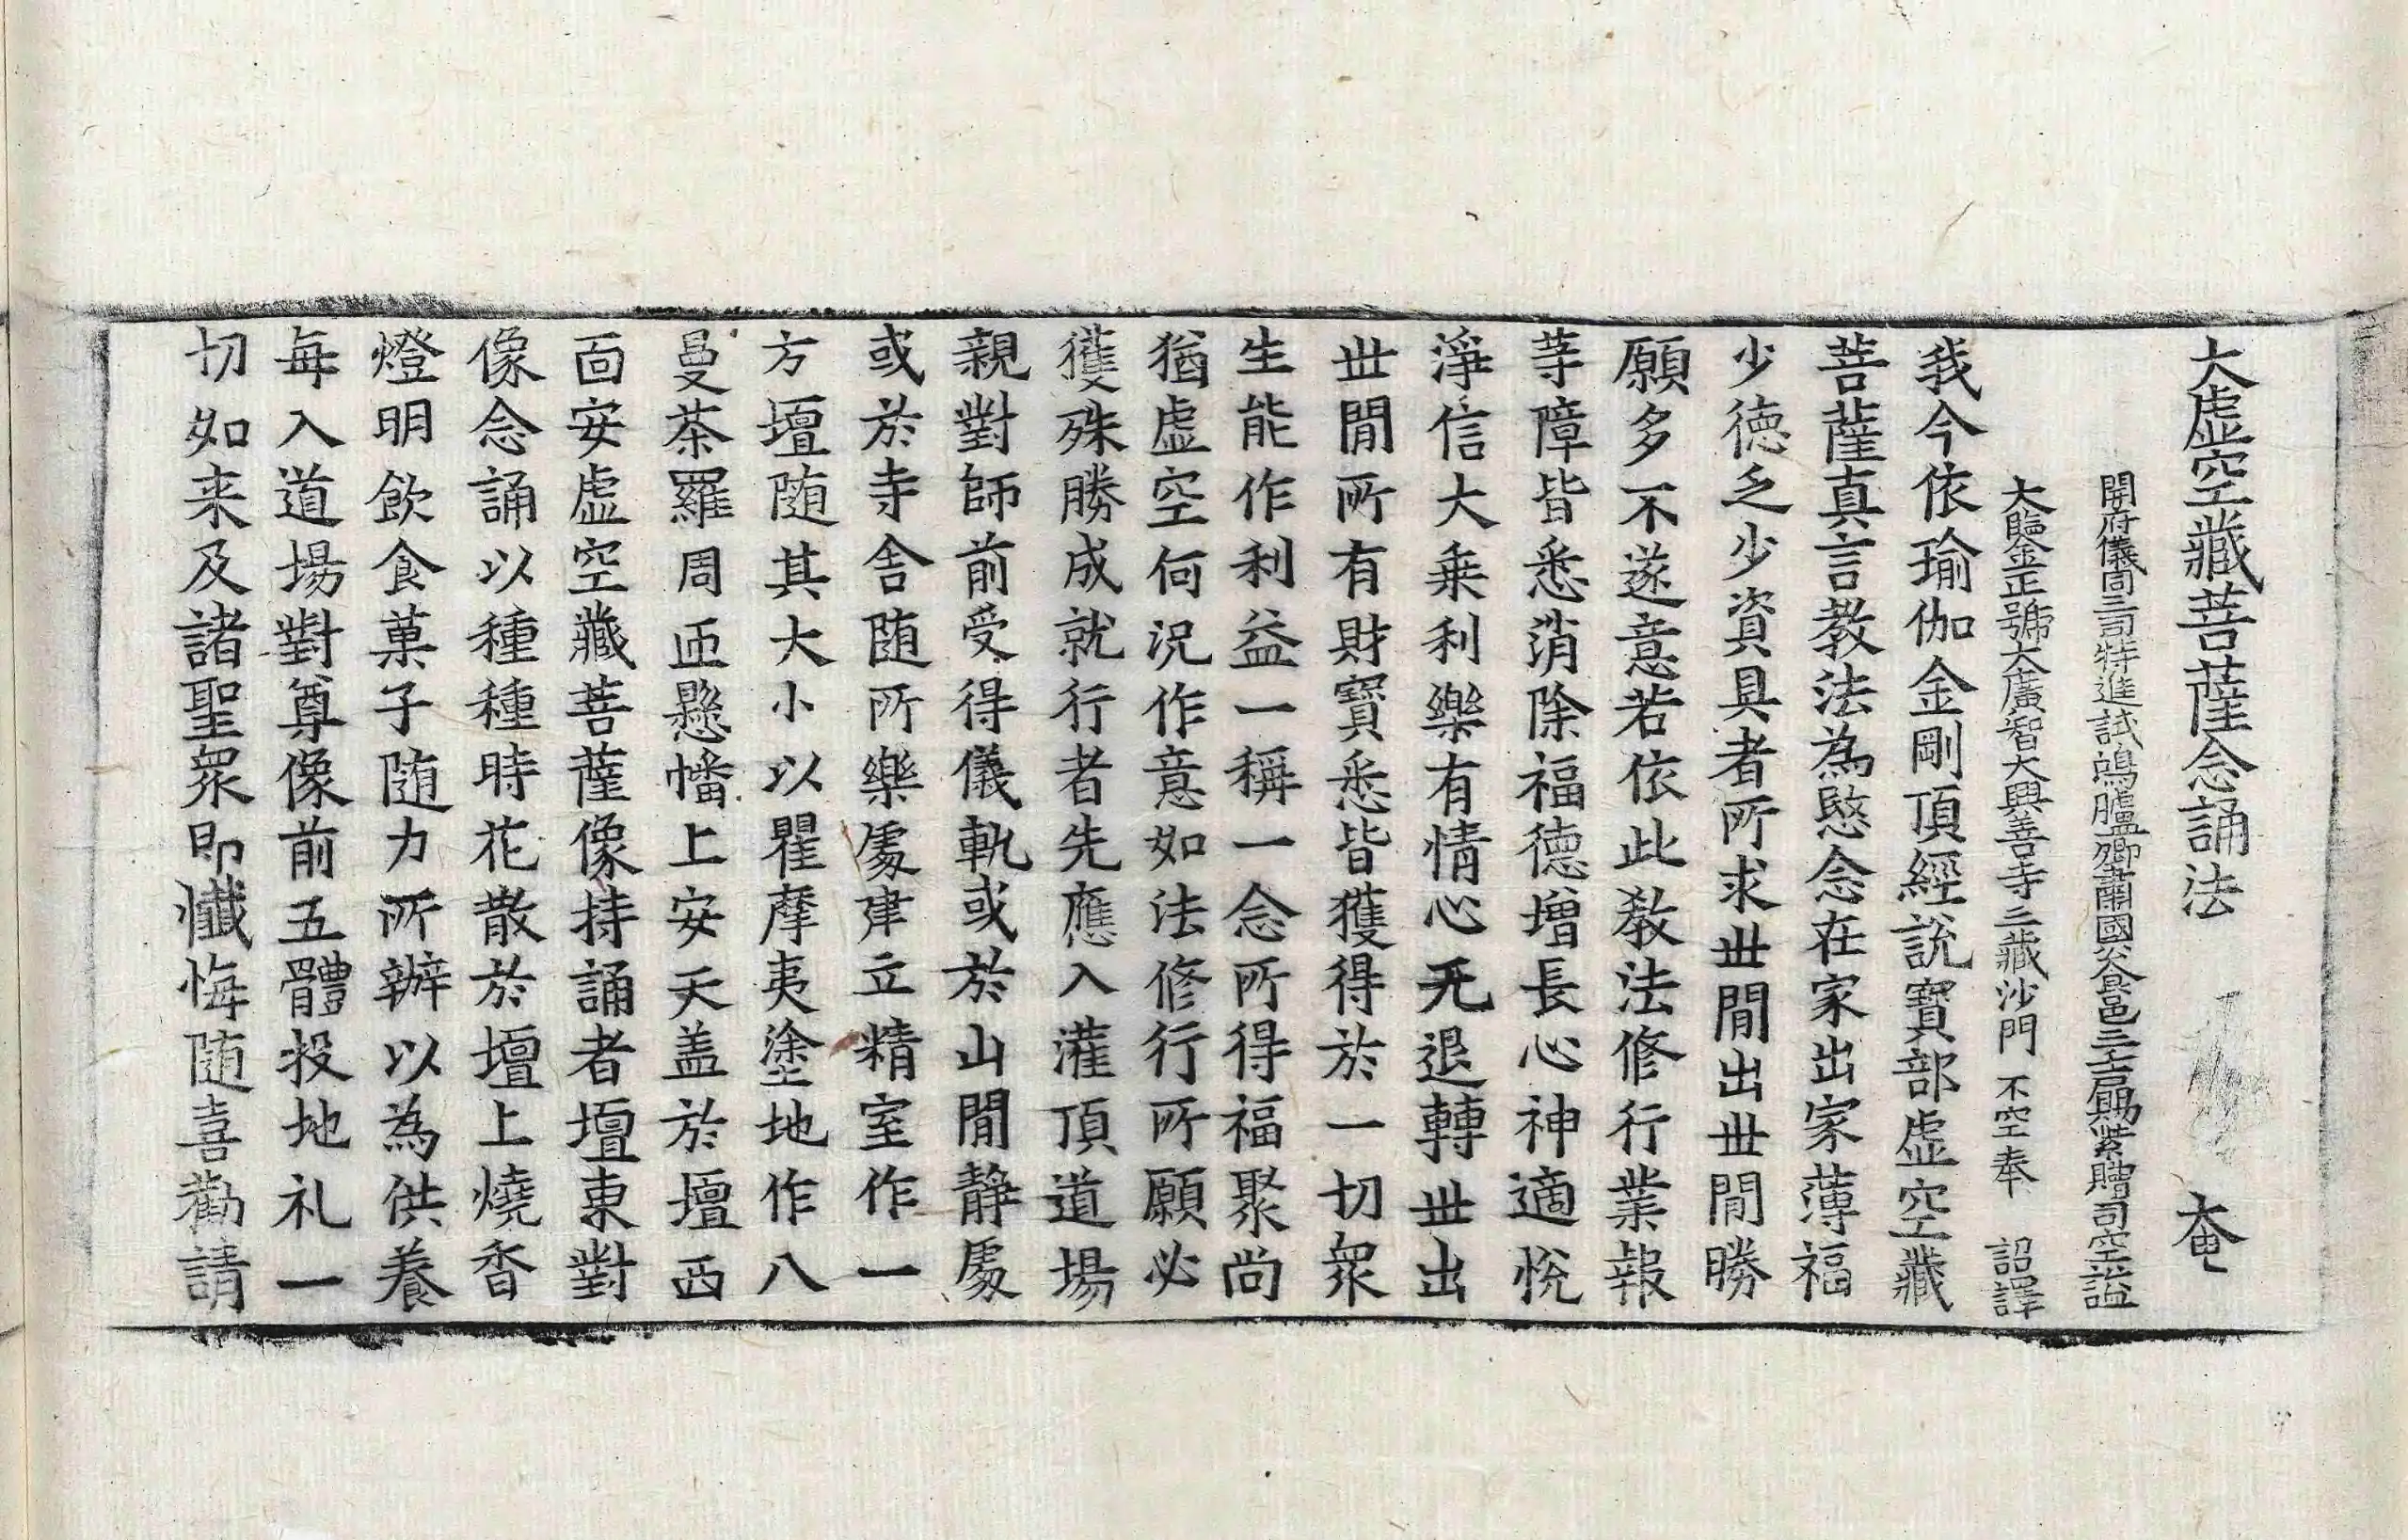 大虛空藏菩薩念誦法 奄
開府儀同三司特進試鴻臚卿肅國公食邑三千戶賜紫贈司空謚
大鑑正號大廣智大興善寺三藏沙門 不空奉 詔譯
我今依瑜伽金剛頂經說寶部虛空藏
菩薩真言教法為愍念在家出家薄福
少德乏少資具者所求世間出世間勝
願多不遂意若依此教法修行業報
等障皆悉消除福德增長心神適悅
淨信大乗利樂有情心无退轉世出
世間所有財寶悉皆獲得於一切衆
生能作利益一稱一念所得福聚尚
猶虛空何況作意如法修行所願必
獲殊勝成就行者先應入灌頂道場
親對師前受得儀軌或於山間靜處
或於寺舍隨所樂處建立精室作一
方壇隨其大小以瞿摩夷塗地作八
曼荼羅周匝懸幡上安天盖於壇西
面安虛空藏菩薩像持誦者壇東對
像念誦以種種時花散於壇上燒香
燈明飲食菓子隨力所辦以為供養
每入道場對尊像前五體投地礼一
切如来及諸聖衆即懺悔隨喜勸請